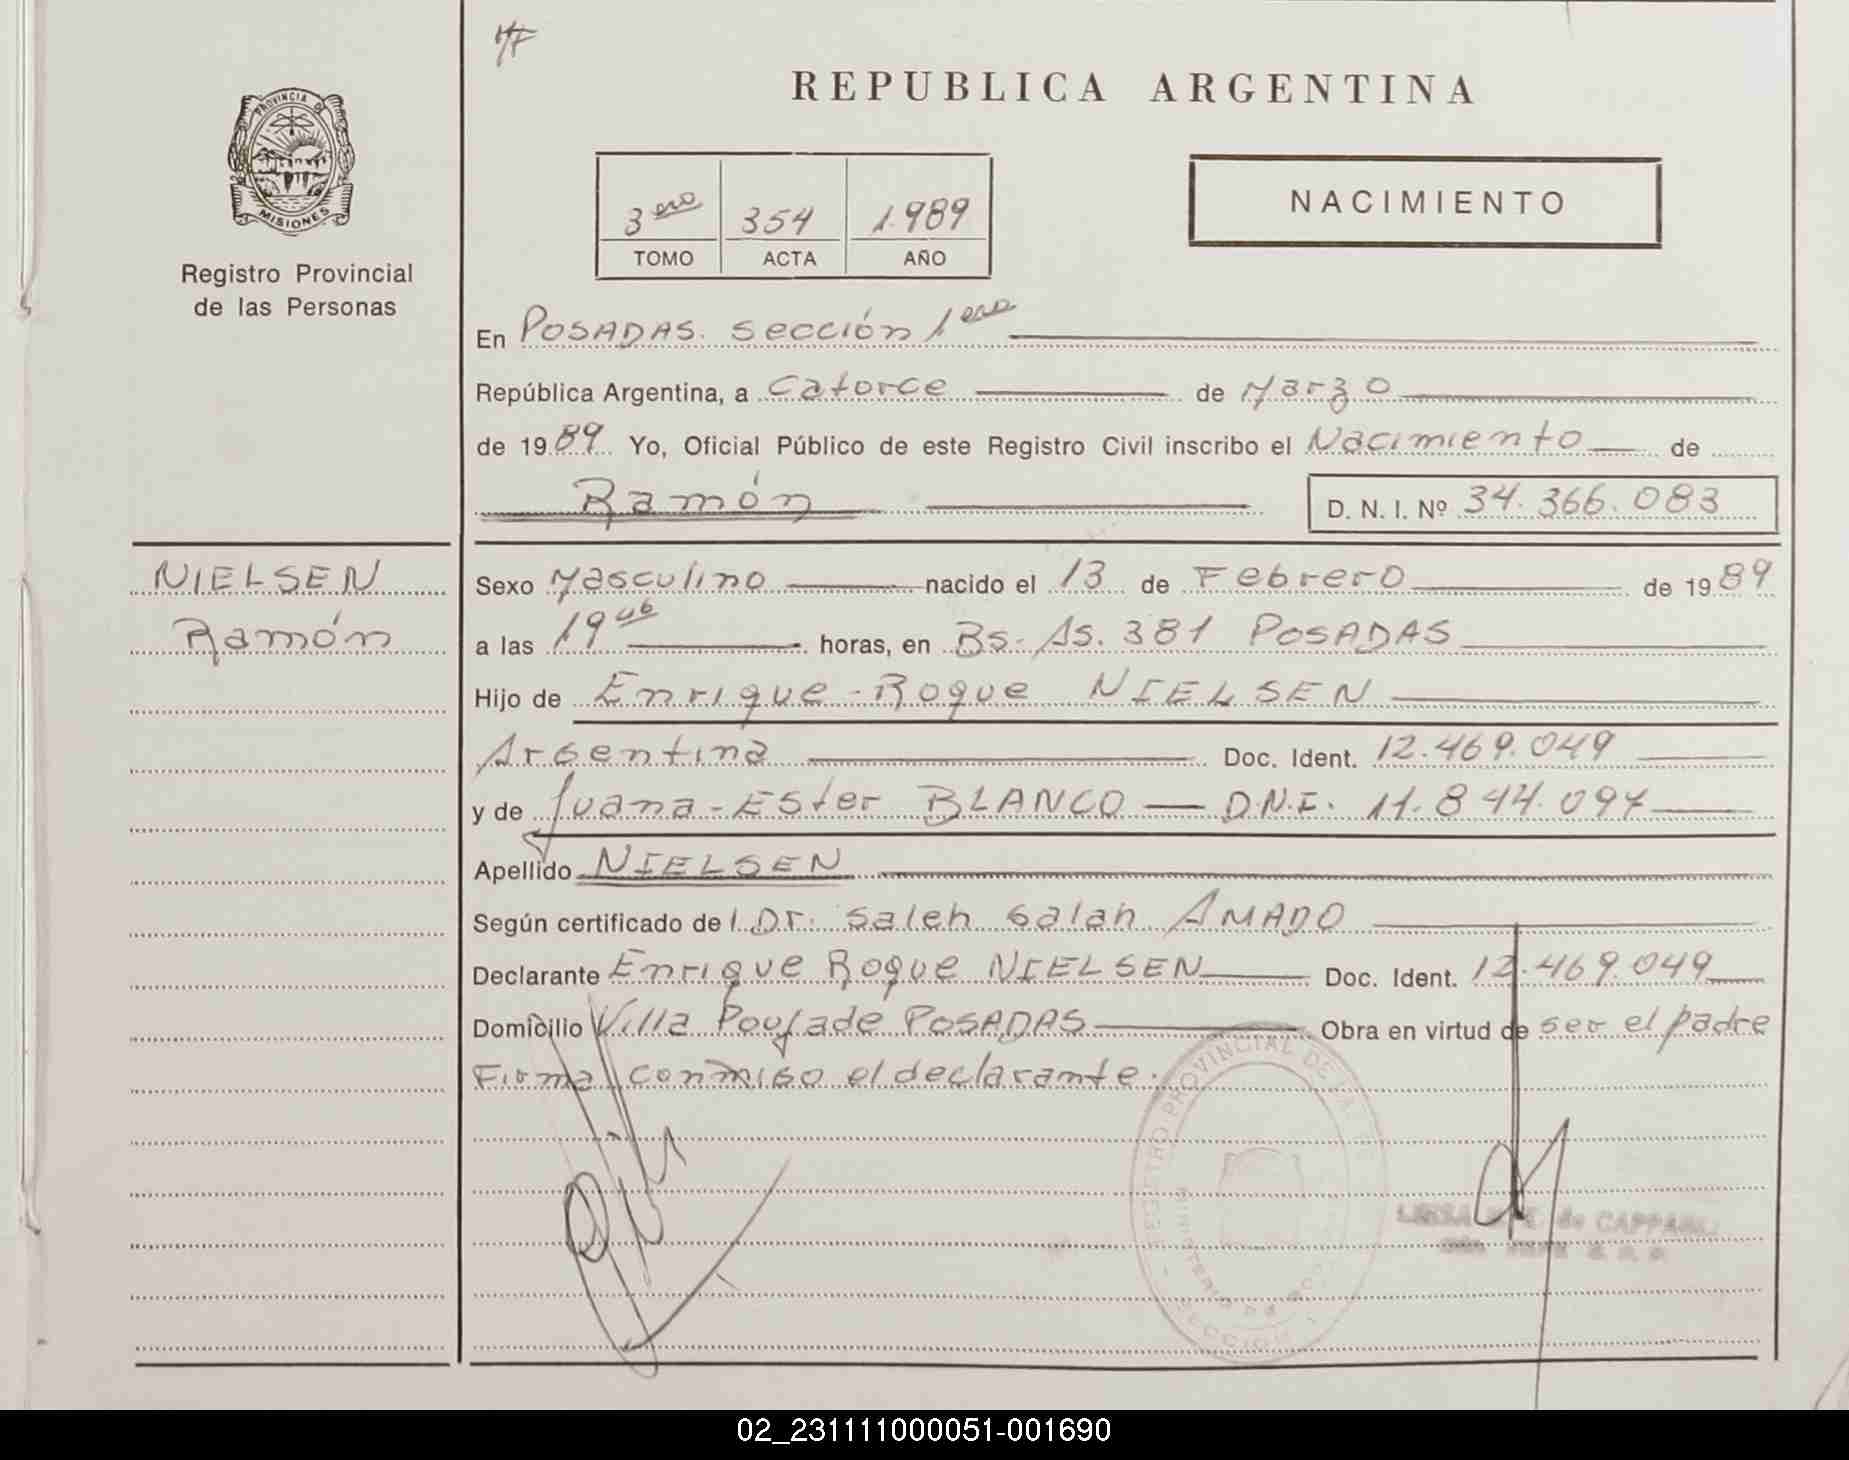 HF
REPUBLICA ARGENTINA
PROVINCIA DE
MISIONES
Registro Provincial
de las Personas
3ero 354 1.989
TOMO ACTA AÑO
NACIMIENTO
En POSADAS. sección 1era
República Argentina, a Catorce de Marzo
de 1989 Yo, Oficial Público de este Registro Civil inscribo el Nacimiento de
Ramón D. N. I. Nº 34.366.083
NIELSEN
Ramón
Sexo Masculino nacido el 13 de Febrero de 1989
a las 19 horas, en Bs. As. 381 POSADAS
Hijo de Enrique - Roque NIELSEN
Argentina Doc. Ident. 12.469.049
y de Juana - Ester BLANCO — D.N.I. 11.844.097
Apellido NIELSEN
Según certificado del Dr. Saleh Salah AMADO
Declarante Enrique Roque NIELSEN Doc. Ident. 12.469.049
Domicilio Villa Poujade POSADAS Obra en virtud de ser el padre
Firma conmigo el declarante.
REGISTRO PROVINCIAL DE LA
MINISTERIO DE
SECCION 1
de CAPPA
02_231111000051-001690